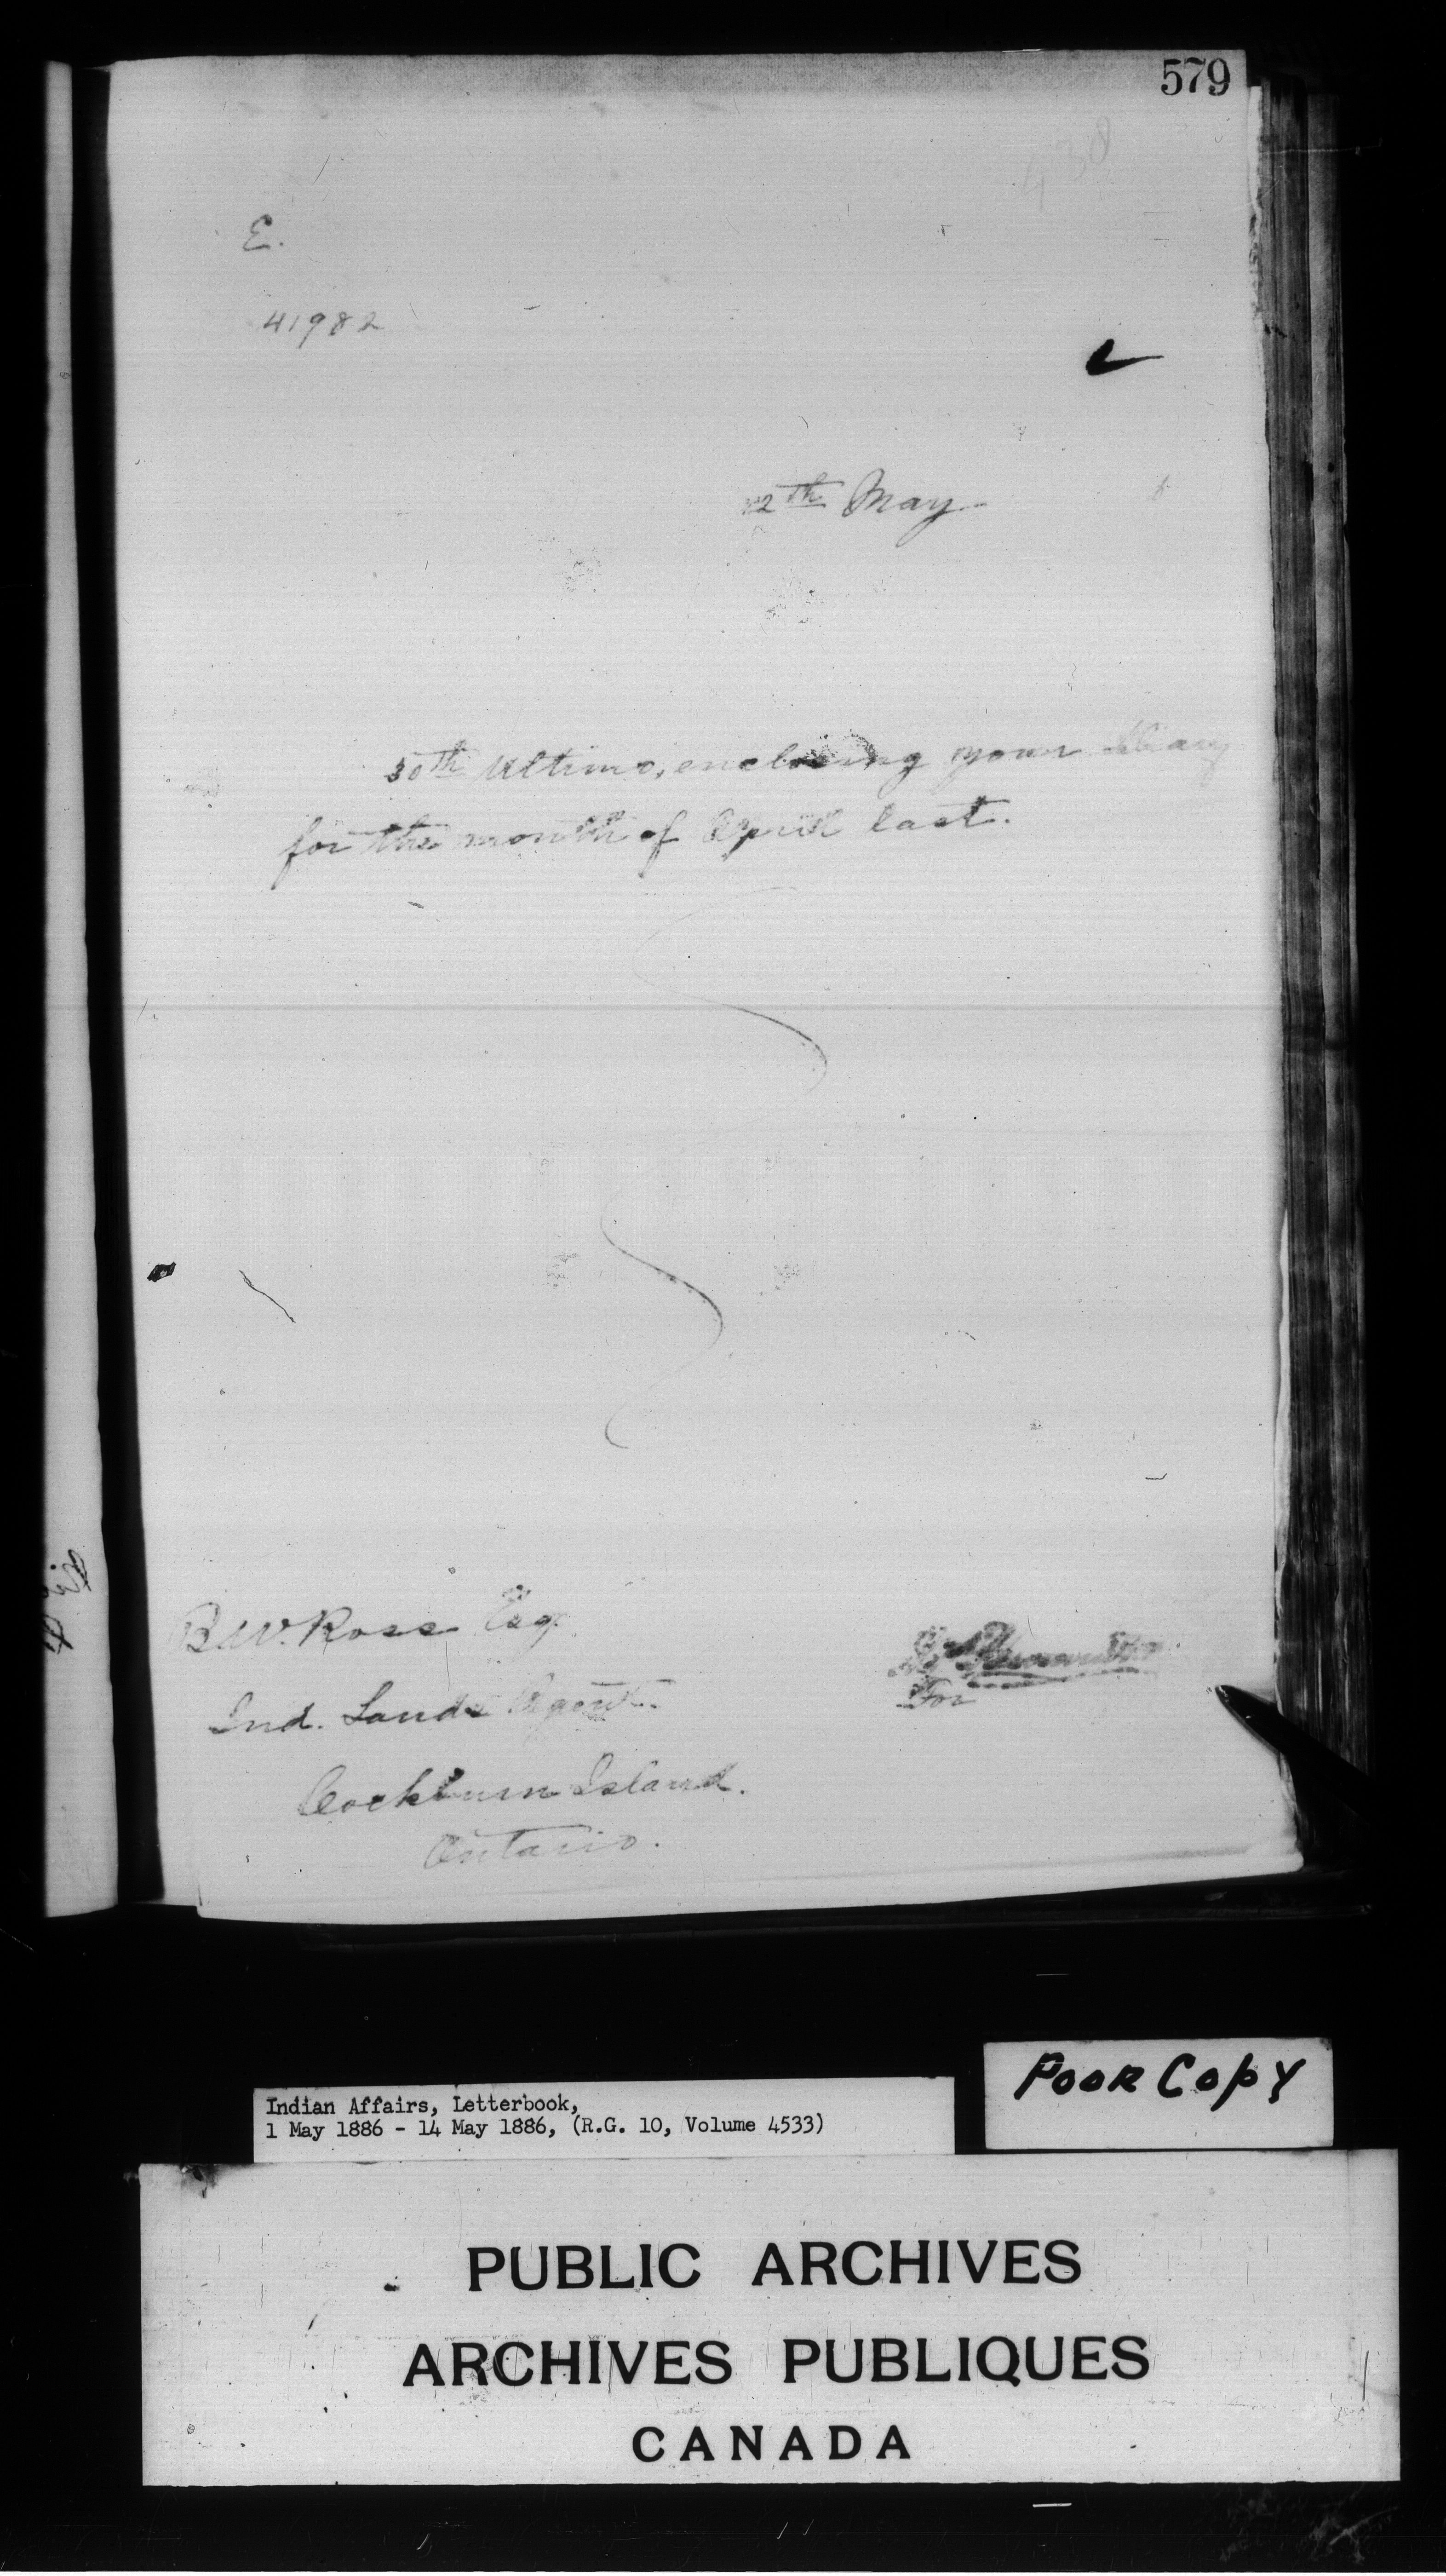 579
430
E.
41982
12th May
6
30th Ultimo, enclosing your diary
for the month of April last.
B.W. Ross Esq.
Ind. Lands Agent.
For
Cockburn Island.
Ontario.
POOR COPY
Indian Affairs, Letterbook,
1 May 1886 - 14 May 1886, (R.G. 10, Volume 4533)
PUBLIC ARCHIVES
ARCHIVES PUBLIQUES
CANADA